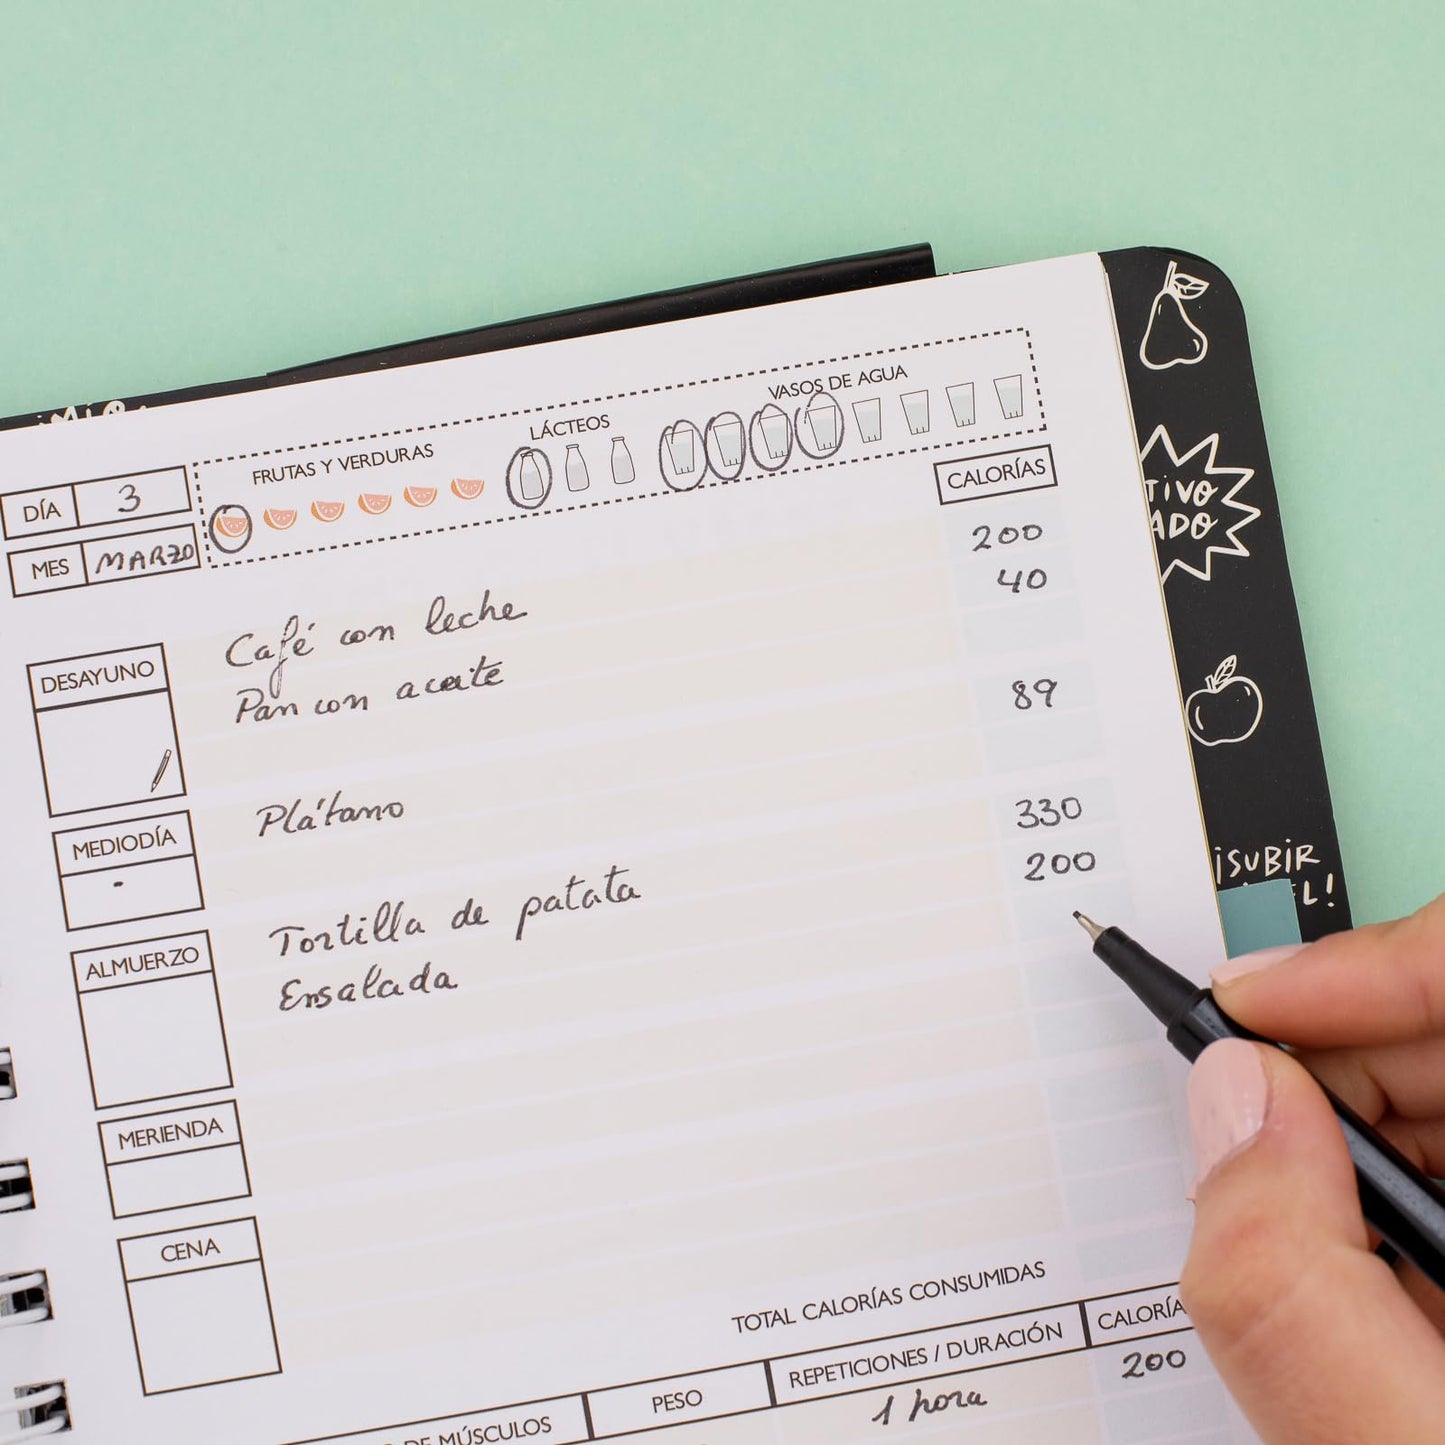 FRUTAS Y VERDURAS
LÁCTEOS
VASOS DE AGUA
DÍA 3
MES MARZO
CALORÍAS
DESAYUNO
Café con leche 200
Pan con aceite 40
MEDIODÍA
Plátano 89
ALMUERZO
Tortilla de patata 330
Ensalada 200
MERIENDA
CENA
TOTAL CALORÍAS CONSUMIDAS
DE MÚSCULOS PESO REPETICIONES / DURACIÓN CALORÍA
1 hora 200
TIVO
ADO
¡SUBIR
EL!